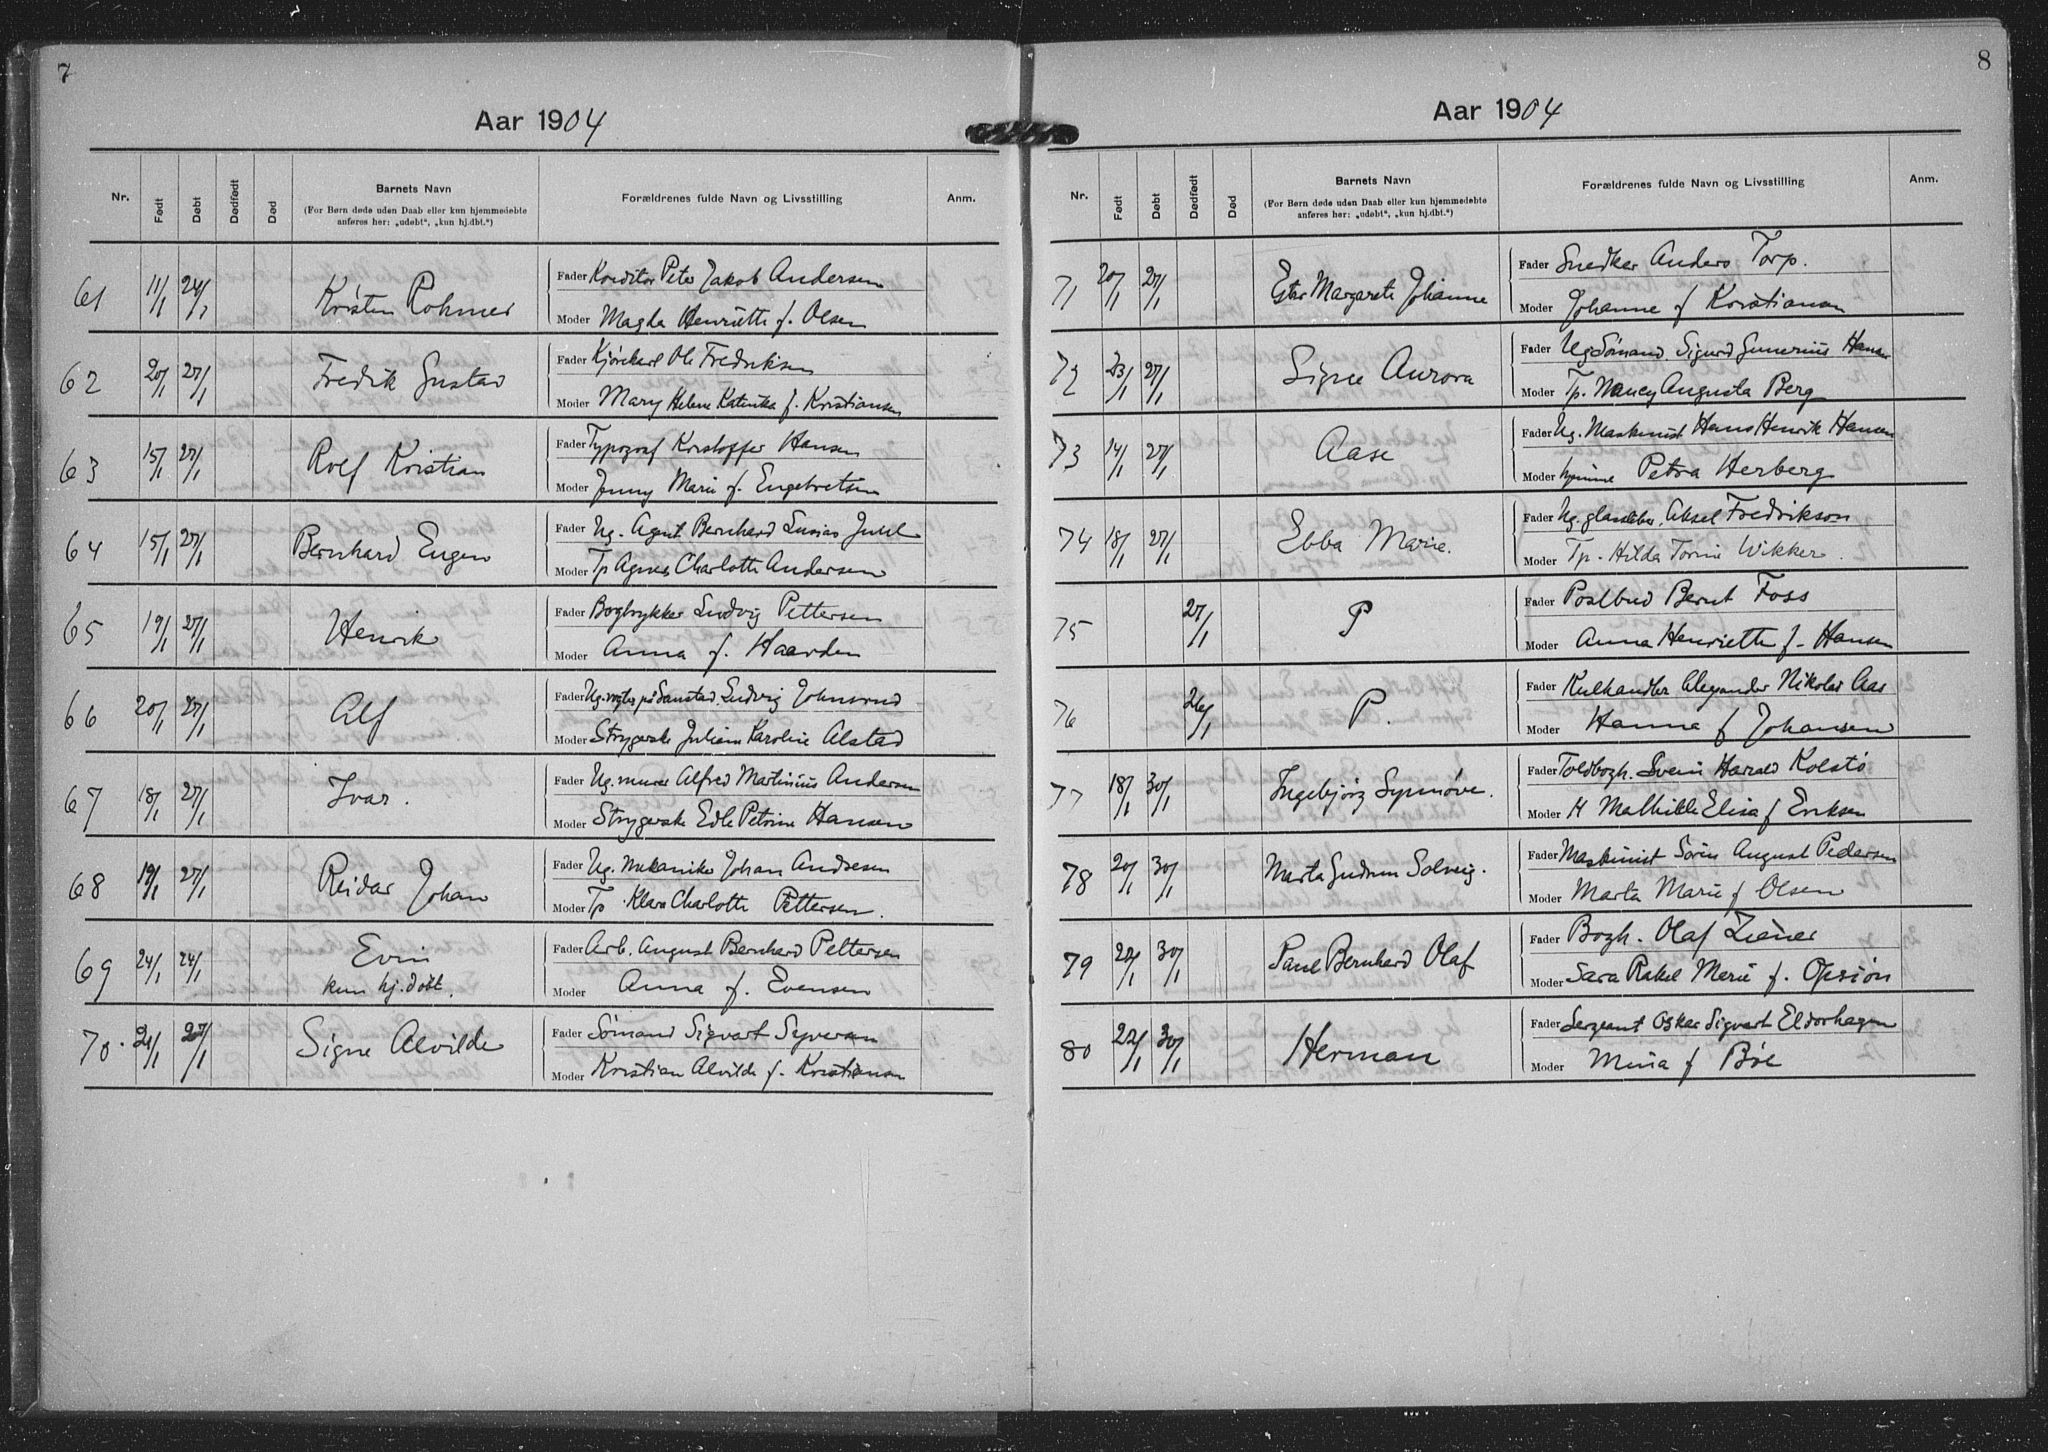 7
Aar 1904
Nr. Født Døbt Dødfødt Død Barnets Navn Forældrenes fulde Navn og Livsstilling Anm.
(For Børn døde uden Daab eller kun hjemmedøbte
anføres her: „udøbt“, „kun hj.dbt.“)
Fader Konditor Peter Jakob Andersen
61 11/1 24/1 Kristen Rohmer
Moder Magda Henriette f. Olsen
Fader Kjørekarl Ole Fredriksen
62 20/1 27/1 Fredrik Gustav
Moder Mary Helene Katinka f. Kristiansen
Fader Typograf Kristoffer Hansen
63 15/1 27/1 Rolf Kristian
Moder Jenny Marie f. Engebretsen
Fader Ug. Agent Bernhard Juul
64 15/1 27/1 Bernhard Eugen
Moder Tp Agnes Charlotte Andersen
Fader Bogtrykker Ludvig Pettersen
65 19/1 27/1 Henrik
Moder Anna f. Haarden
Fader Ug. Ludvig Johnsrud
66 20/1 27/1 Alf
Moder Strygerske Juliane Karoline Alstad
Fader Ug. murer Alfred Martinius Andersen
67 18/1 27/1 Ivar.
Moder Strygerske Edle Petrine Hansen
Fader Ug. Mekaniker Johan Andresen
68 19/1 27/1 Reidar Johan
Moder Tp Klara Charlotte Pettersen.
Fader Arb. August Bernhard Pettersen
69 24/1 24/1 Evin
kun hj. døbt.
Moder Anna f. Evensen
Fader Sømand Sigvart Syversen
70. 21/1 27/1 Signe Alvilde
Moder Kristian Alvilde f. Kristiansen
8
Aar 1904
Nr. Født Døbt Dødfødt Død Barnets Navn Forældrenes fulde Navn og Livsstilling Anm.
(For Børn døde uden Daab eller kun hjemmedøbte
anføres her: „udøbt“, „kun hj.dbt.“)
Fader Snedker Anders Torp.
71 20/1 27/1 Ester Margarete Johanne
Moder Johanne f Kristiansen
Fader Ug Sømand. Sigurd Gunerius Hansen
72 23/1 27/1 Signe Aurora
Moder Tp. Nancy Augusta Berg
Fader Ug. Maskinist Hans Henrik Hansen
73 14/1 27/1 Aase
Moder Petra Herberg
Fader Ug. Aksel Fredrikson
74 18/1 27/1 Ebba Marie.
Moder Tp. Hilda Wikker.
Fader Postbud Bernt Foss
75 27/1 P
Moder Anna Henriette f. Hansen
Fader Kulhandler Alexander Nikolai Aas
76 26/1 P.
Moder Hanna f Johansen
Fader Toldbogh. Svein Harald Kolstø
77 18/1 30/1 Ingebjørg Synnøve.
Moder H Mathilde Elisa f Eriksen
Fader Maskinist Sørin August Pedersen
78 20/1 30/1 Marta Gudrun Solveig.
Moder Marta Marie f Olsen
Fader Bogh. Olaf Ziener
79 22/1 30/1 Paul Bernhard Olaf
Moder Sara Rakel Marie f. Opsiøn
Fader Sergeant Oskar Sigvart Eldorhagen
80 22/1 30/1 Herman
Moder Mina f Bøe